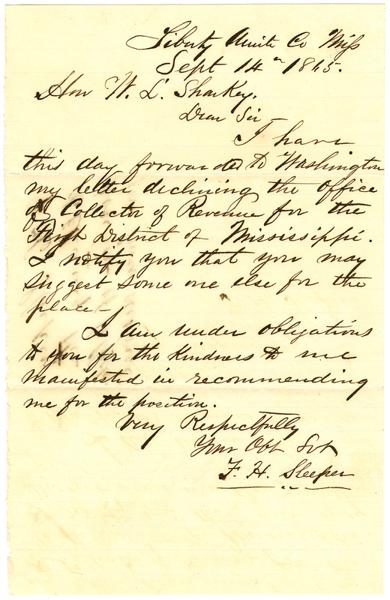 Liberty Amite Co Miss
Sept 14th 1865.
Hon W. L. Sharkey,
Dear Sir
I have
this day forwarded to Washington
my letter declining the office
of Collector of Revenue for the
First District of Mississippi.
I notify you that you may
suggest some one else for the
place—
I am under obligations
to you for the kindness to me
manifested in recommending
me for the position.
Very Respectfully
Your Obt Svt
F. H. Sleeper